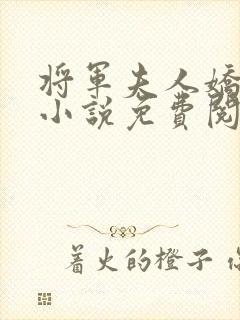 将军夫人嬌
小説免費閱
着火的橙子